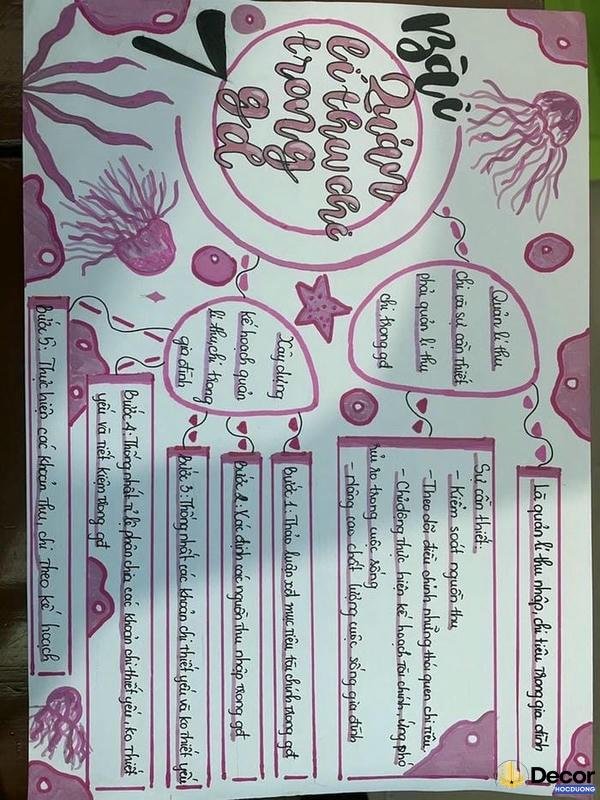 Bài
Quản
lí thu chi
trong
gđ
Quản lí thu
chi và sự cần thiết
phải quản lí thu
chi trong gđ
Là quản lí thu nhập, chi tiêu trong gia đình
Sự cần thiết:
- Kiểm soát nguồn thu
- Theo dõi điều chỉnh những thói quen chi tiêu
- Chủ động thực hiện kế hoạch tài chính, ứng phó
rủi ro trong cuộc sống
- nâng cao chất lượng cuộc sống gia đình
Xây dựng
kế hoạch quản
lí thu, chi trong
gia đình
Bước 1: Thảo luận mục tiêu tài chính trong gđ
Bước 2: Xác định các nguồn thu nhập trong gđ
Bước 3: Thống nhất các khoản chi thiết yếu và ko thiết yếu
Bước 4: Thống nhất tỉ lệ phân chia các khoản chi thiết yếu, ko thiết
yếu và tiết kiệm trong gđ
Bước 5: Thực hiện các khoản thu, chi theo kế hoạch
Decor
HOCDUONG